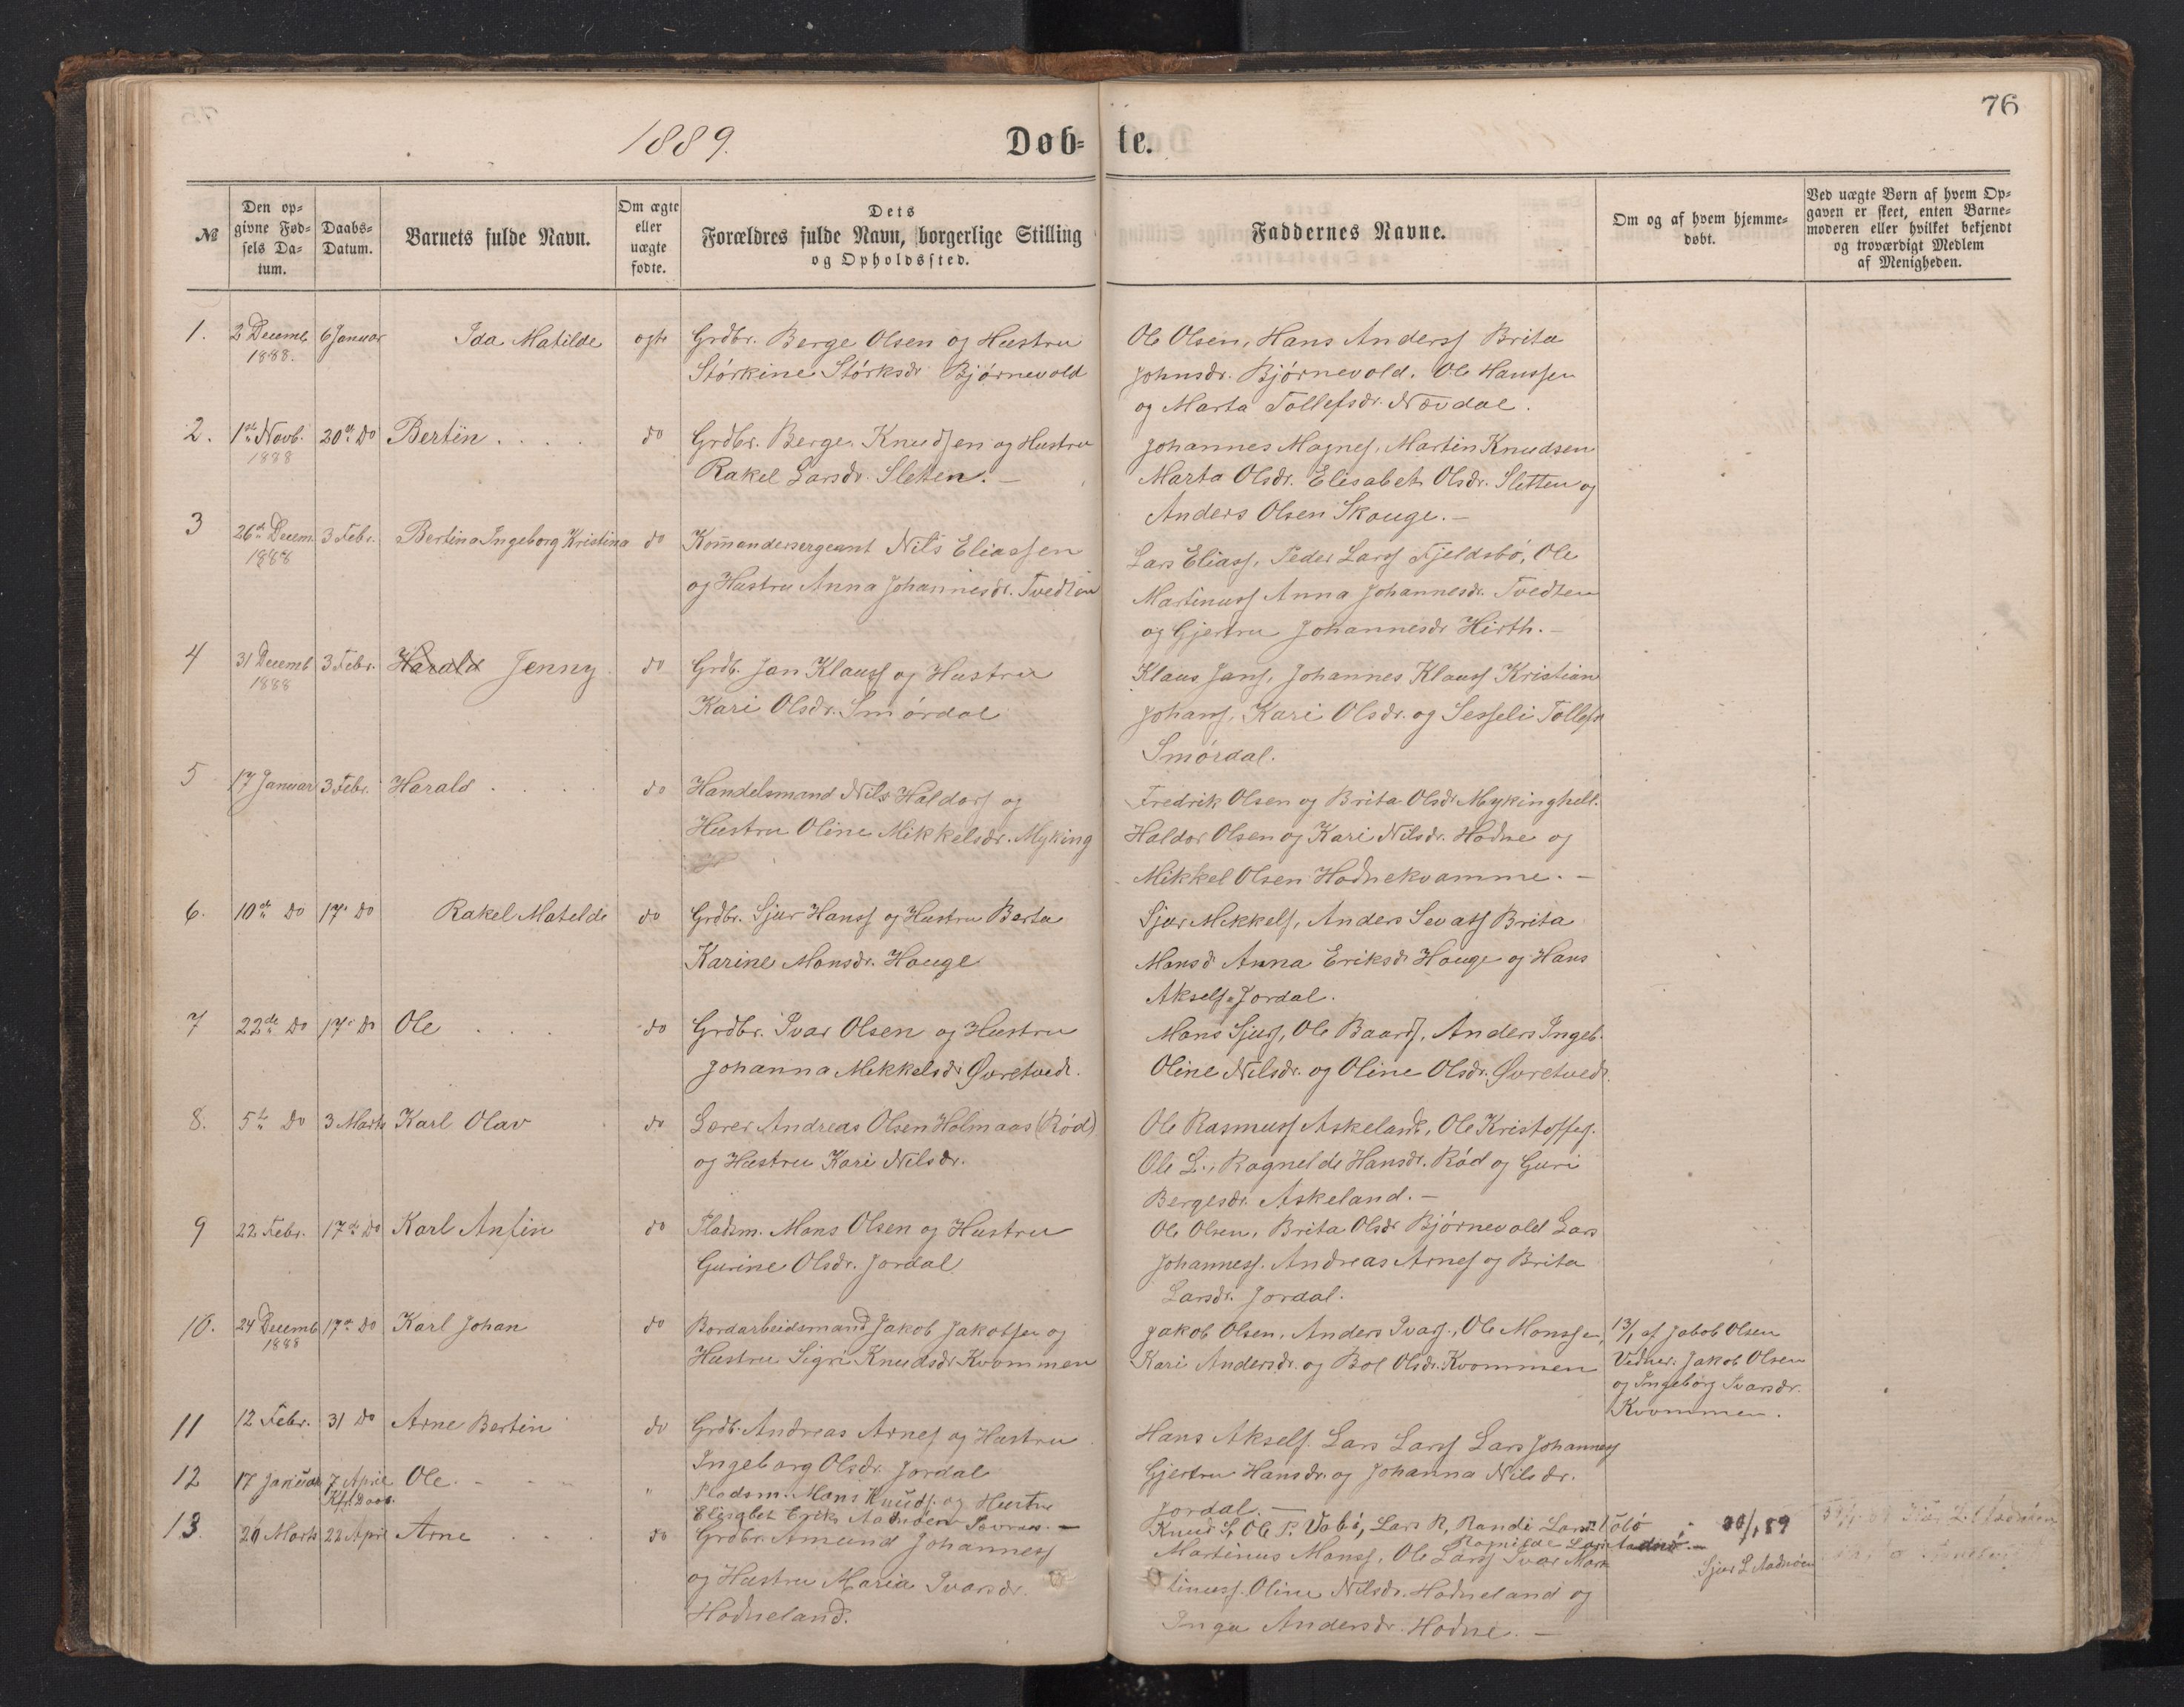 76
1889.
Døb- te.
№
Den opgivne Fødsels Datum.
Daabs-Datum.
Barnets fulde Navn.
Om ægte eller uægte fødte.
Dets Forældres fulde Navn, borgerlige Stilling og Opholdssted.
Faddernes Navne.
Om og af hvem hjemmedøbt.
Ved uægte Børn af hvem Opgaven er skeet, enten Barnemoderen eller hvilket bekjendt og troværdigt Medlem af Menigheden.
1. 2 Decemb 1888. 6 Januar Ida Matilde ægte
Grdbr. Berge Olsen og Hustru
Störkine Störksdr Bjørnevold
Ole Olsen, Hans Anderss Brita
Johnsdr. Bjørnevold. Ole Hanssen
og Marta Tollefsdr. Nævdal.
2. 1ste Novb. 1888 20de do Bertin do
Grdbr. Berge Knudsen og Hustru
Rakel Larsdr. Sleten.
Johannes Magnes, Martin Knudsen
Marta Olsdr. Elisabet Olsdr. Sletten og
Anders Olsen Skauge.
3 26de Decem. 1888 3 Febr. Bertina Ingeborg Kristina do
Komandersergeant Nils Eliassen
og Hustru Anna Johannesdr. Tvedten
Lars Eliass, Peder Larss Fjeldsbö, Ole
Martinuss Anna Johannesdr. Tvedten
og Gjertru Johannesdr Hirth.
4 31 Decemb 1888 3 Febr. Harald Jenny do
Grdb. Jan Klauss og Hustru
Kari Olsdr. Smördal
Klaus Jans, Johannes Klauss Kristian
Johans, Kari Olsdr. og Sesseli Tollefsd
Smördal.
5 17 Januar 3 Febr. Harald do
Handelsmand Nils Haldors og
Hustru Oline Mikkelsdr. Myking
Fredrik Olsen og Brita Olsdr Mykinghell.
Haldor Olsen og Kari Nilsdr. Hodne og
Mikkel Olsen Hodnekvamme.
6. 10de do 17. do Rakel Matilde do
Grdbr. Sjur Hanss og Hustru Berta
Karine Monsdr. Hauge
Sjur Mikkels, Anders Sevats Brita
Monsd Anna Eriksdr Hauge og Hans
Aksels. Jordal.
7 22de do 17. do Ole do
Grdbr. Ivar Olsen og Hustru
Johanna Mikkelsdr Øvretvedt.
Mons Sjurs, Ole Baards, Anders Ingeb.
Oline Nilsdr. og Oline Olsdr. Øvretvedt.
8. 5te do 3 Marts Karl Olav do
Lærer Andreas Olsen Holmaas (Röd)
og Hustru Kari Nilsdr.
Ole Rasmuss Askeland, Ole Kristoffes.
Ole L., Ragnelde Hansdr. Röd og Guri
Bergesdr. Askeland.
9 22 Febr. 17de do Karl Anfin do
Pladsm. Mons Olsen og Hustru
Gurine Olsdr. Jordal
Ole Olsen, Brita Olsdr Bjørnevold Lars
Johanness. Andreas Arnes og Brita
Larsdr. Jordal.
10. 24 Decemb 1888 17de do Karl Johan do
Bordarbeidsmand Jakob Jakobsen og
Hustru Sigri Knudsdr Kvommen
Jakob Olsen, Anders Ivars., Ole Monssen,
Kari Andersdr. og Bol Olsdr. Kvommen
13/1 af Jakob Olsen
Vidner. Jakob Olsen
og Ingebörg Ivarsdr.
Kvommen.
11 12 Febr. 31 do Arne Bertin do
Grdb. Andreas Arnes og Hustru
Ingeborg Olsdr. Jordal
Hans Aksels. Lars Larss Lars Johannes
Gjertru Hansdr. og Johanna Nilsdr.
Jordal.
12 17 Januar 7 April Ole "
Pladsm. Mons Knuds. og Hustru
Elisabet Eriks
Knud S, Ole P. Vabö, Lars R, Randi Larsd
/1 89
Sjur L Aadnöen
13. 20 Marts 22 April Arne do
Grdbr. Amund Johanness
og Hustru Maria Ivarsdr.
Hodneland.
Martinus Monss, Ole Larss Ivar Mar
tinuss. Oline Nilsdr. Hodneland og
Inga Andersdr. Hodne.